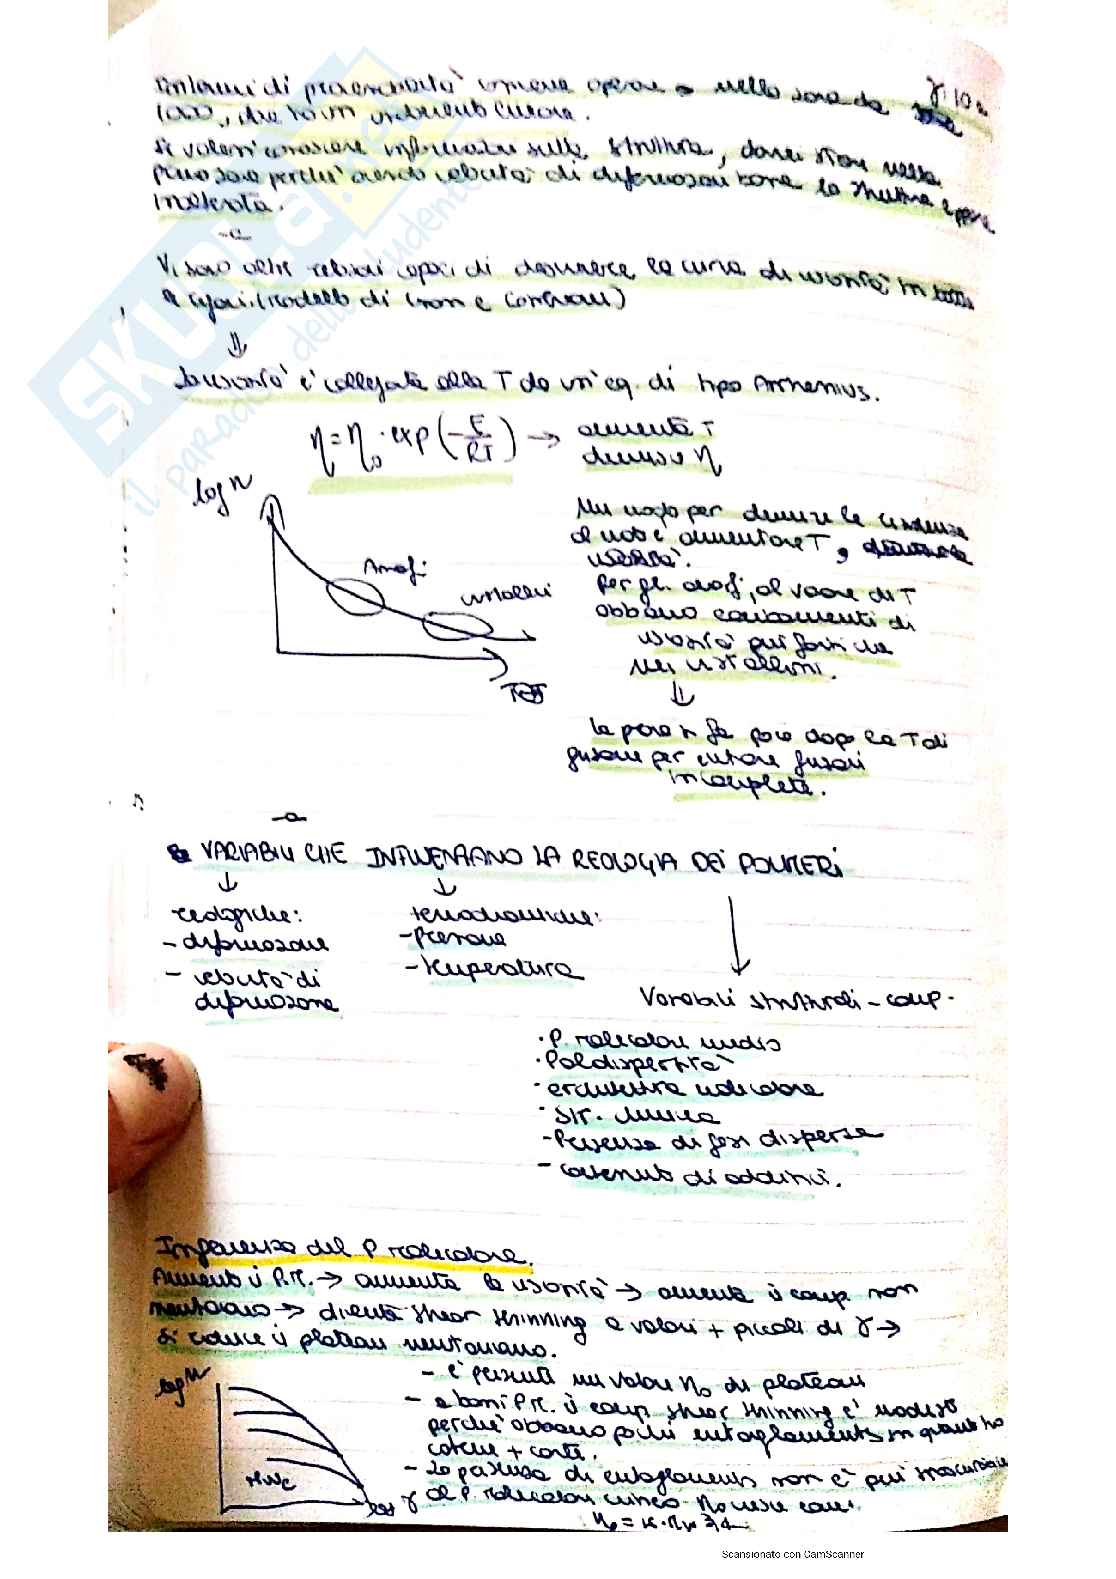 di processabilità conviene operare nella zona da γ̇ 10 a
1000, che ha un andamento lineare.
Si volessi conoscere informazioni sulla struttura, dovrei stare nella
prima zona perché avendo velocità di deformazioni bassa la struttura è
inalterata.
Vi sono altre relazioni capaci di descrivere la curva di viscosità in tutti
(modello di Cross e Carreau)
⇓
La viscosità è collegata alla T da un'eq. di tipo Arrhenius.
η = η₀ · exp(-E/RT) → aumenta T
diminuisce η
log η
Amorfi
cristallini
T
Un modo per diminuire la resistenza
al moto è aumentare T,
viscosità.
Per gli amorfi, al variare di T
abbiamo cambiamenti di
viscosità più forti che
nei cristallini.
⇓
la prova si fa poco dopo la T di
fusione per evitare fusioni
incomplete.
VARIABILI CHE INFLUENZANO LA REOLOGIA DEI POLIMERI
reologiche:
- deformazione
- velocità di
deformazione
termodinamiche:
- Pressione
- temperatura
Variabili strutturali - comp.
· P. molecolare medio
· Polidispersità
- architettura molecolare
· str. chimica
- Presenza di fasi disperse
- contenuto di additivi.
Influenza del P. molecolare.
Aumento il P.M. → aumenta la viscosità → aumenta il comp. non
newtoniano → diventa shear thinning a valori + piccoli di γ̇ →
Si riduce il plateau newtoniano.
log η
log γ̇
- è presente un valore η₀ di plateau
- a bassi P.M. il comp. shear thinning è modesto
perché abbiamo pochi entaglements in quanto ho
catene + corte.
- La presenza di entaglements non è più trascurabile
al P. molecolare critico.
η₀ = K · Mw 3,4
Scansionato con CamScanner
SKUOLA.net
il paradiso dello studente